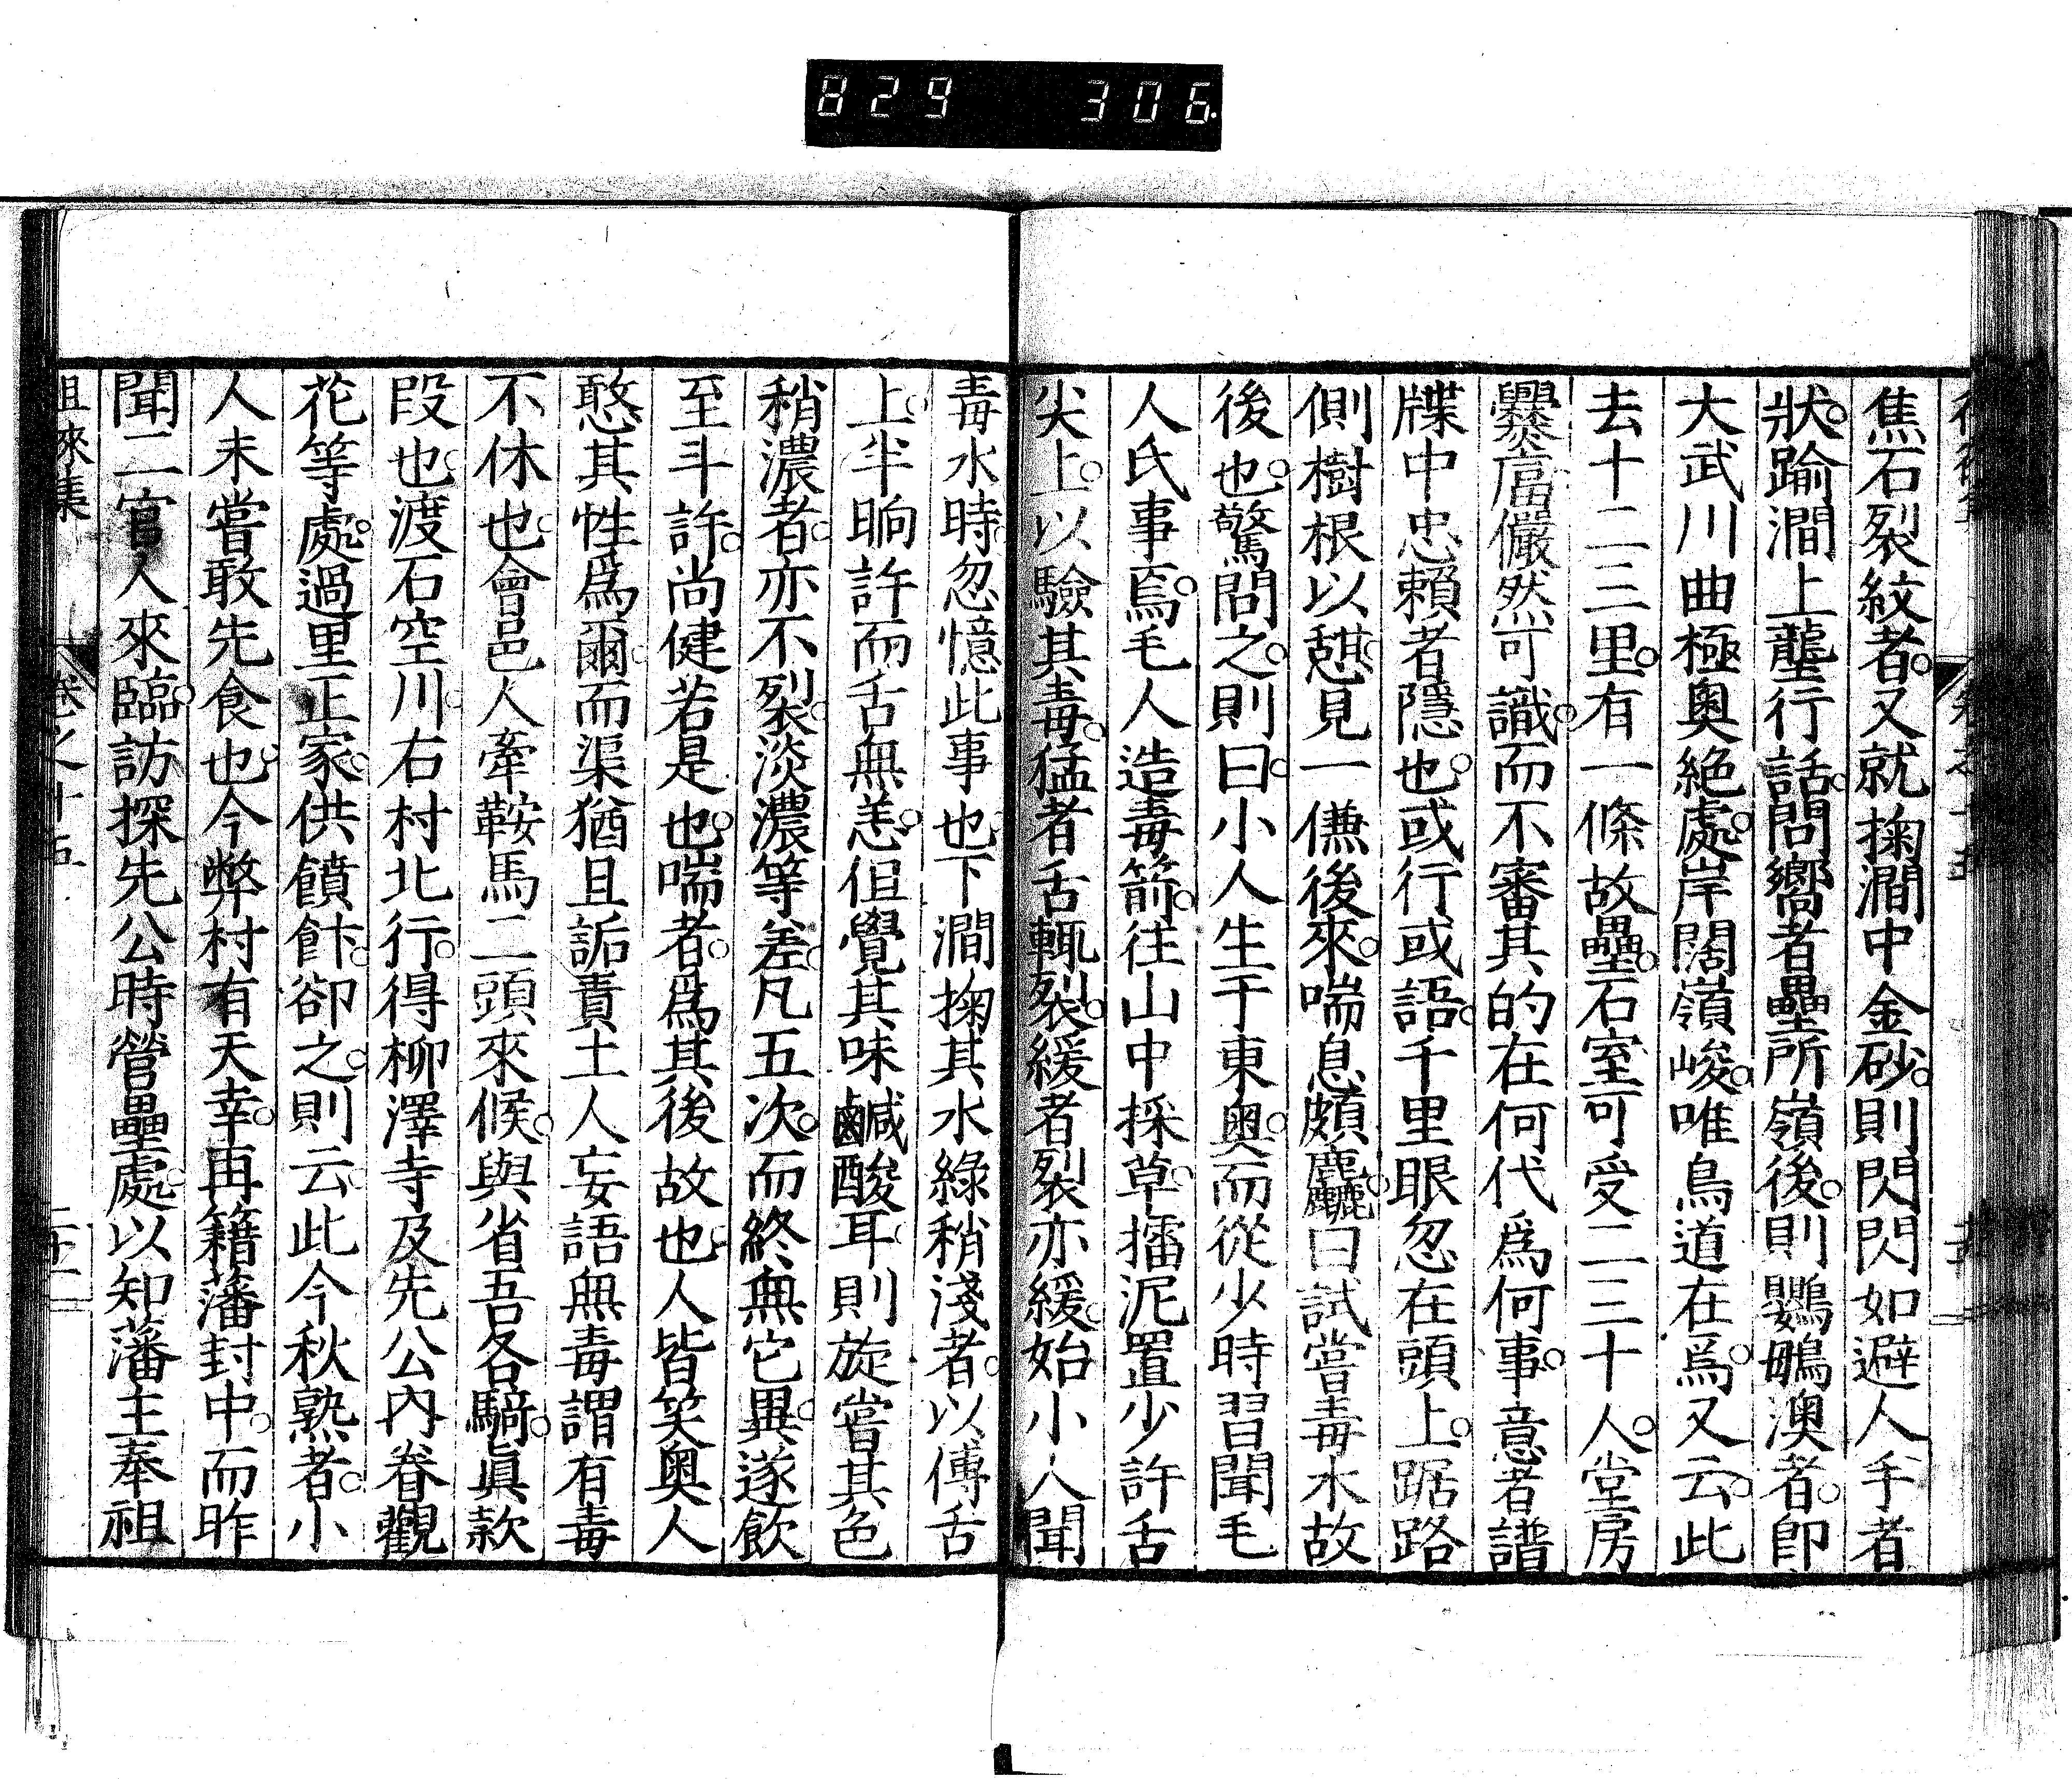 829 306
焦石裂紋者。又就掬澗中金砂。則閃閃如避人手者
狀。踰澗上壟行話。問嚮者壘所嶺後。則鸚鵡澳者。即
大武川曲極奧絕處。岸闊嶺峻。唯鳥道在焉。又云。此
去十二三里。有一條故壘。石室可受二三十人。堂房
爨富儼然可識。而不審其的在何代爲何事。意者譜
牒中忠賴者隱也。或行或語。千里眼忽在頭上。踞路
側樹根以憇。見一傔後來。喘息頗麤。曰試嘗毒水故
後也。驚問之。則曰。小人生于東奧。而從少時習聞毛
人氏事焉。毛人造毒箭。往山中採草。擂泥置少許舌
尖上。以驗其毒。猛者舌輒裂。緩者裂亦緩。始小人聞
毒水時。忽憶此事也。下澗掬其水綠稍淺者。以傅舌
上。半晌許而舌無恙。但覺其味鹹酸耳。則旋嘗其色
稍濃者。亦不裂。淡濃等差。凡五次。而終無它異。遂飲
至斗許。尚健若是也。喘者。爲其後故也。人皆笑奧人
憨其性爲爾。而渠猶且詬責土人妄語無毒謂有毒
不休也。會邑人牽鞍馬二頭來候。與省吾各騎。眞款
段也。渡石空川。右村北行。得柳澤寺及先公內眷觀
花等處。過里正家。供饋飰。卻之。則云。此今秋熟者。小
人未嘗敢先食也。今弊村有天幸。再籍藩封中。而昨
聞二官人來臨。訪探先公時營壘處。以知藩主奉祖
徂徠集 卷之十五 二十二